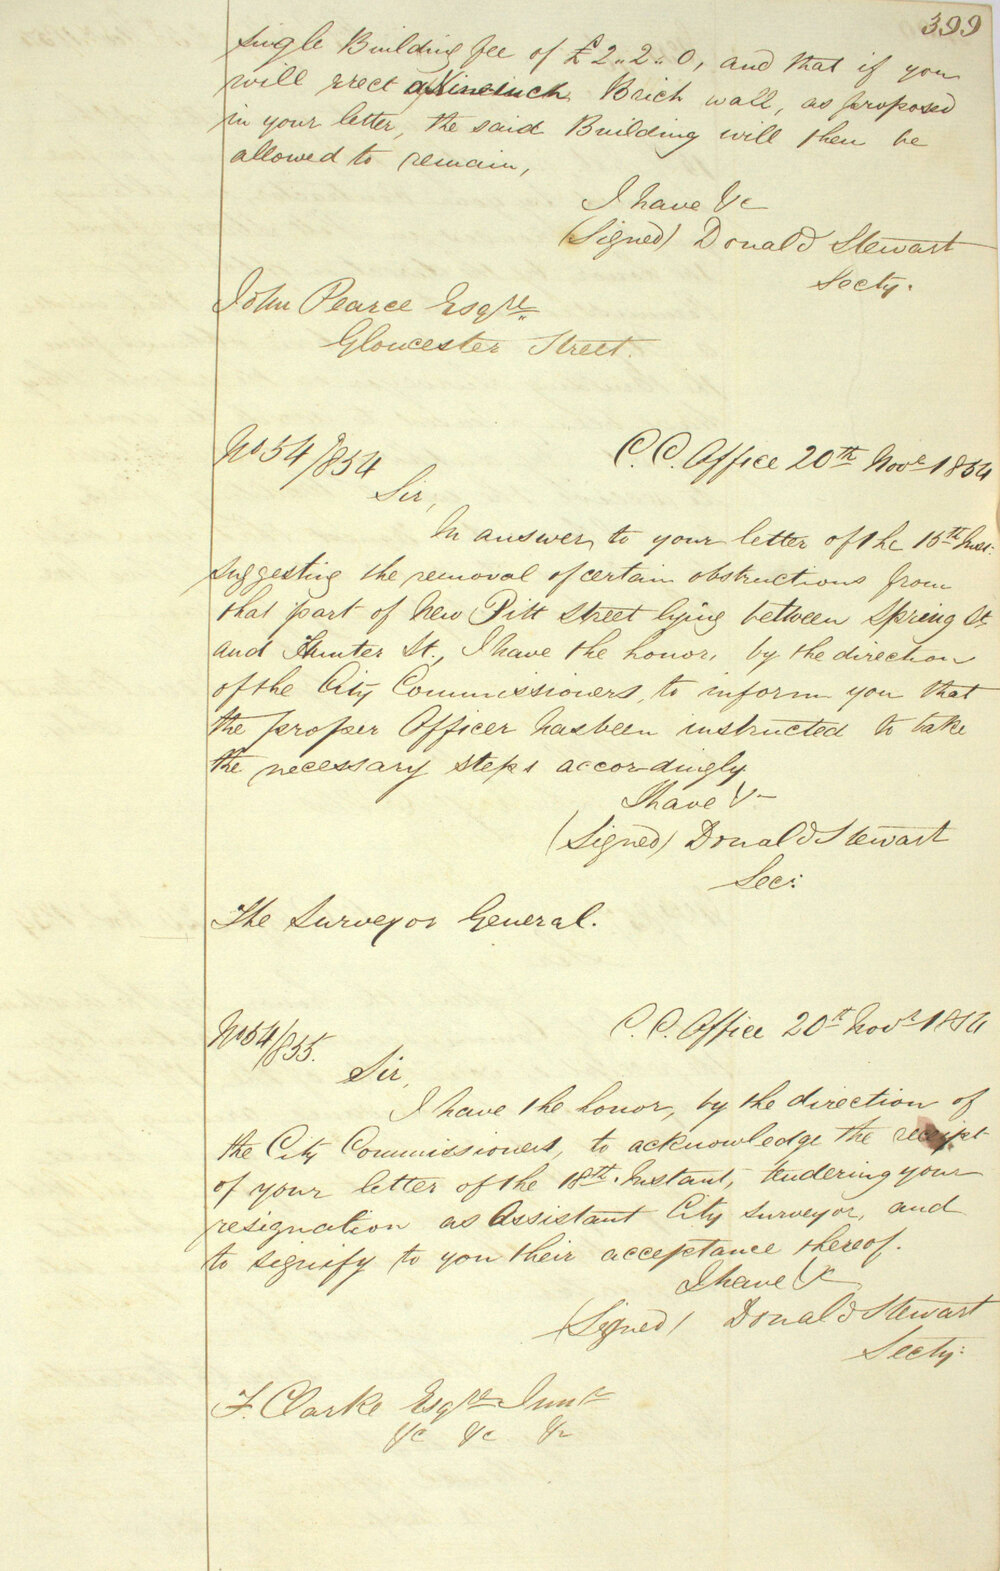 399
single Building fee of £2..2..0, and that if you
will erect a Nine inch Brick wall, as proposed
in your letter, the said Building will then be
allowed to remain,
I have &c
(Signed) Donald Stewart
Secty.
John Pearce Esqre
Gloucester Street.
No 54/854
C. C. Office 20th Novr 1854
Sir,
In answer to your letter of the 15th Inst:
suggesting the removal of certain obstructions from
that part of New Pitt Street lying between Spring St
and Hunter St., I have the honor, by the direction
of the City Commissioners, to inform you that
the proper Officer has been instructed to take
the necessary steps accordingly
I have &c
(Signed) Donald Stewart
Sec:
The Surveyor General.
No 54/855.
C. C. Office 20th Novr 1854
Sir,
I have the honor, by the direction of
the City Commissioners, to acknowledge the receipt
of your letter of the 18th Instant, tendering your
resignation as Assistant City Surveyor, and
to signify to you their acceptance thereof.
I have &c
(Signed) Donald Stewart
Secty:
F. Clarke Esqre Junr
&c &c &c